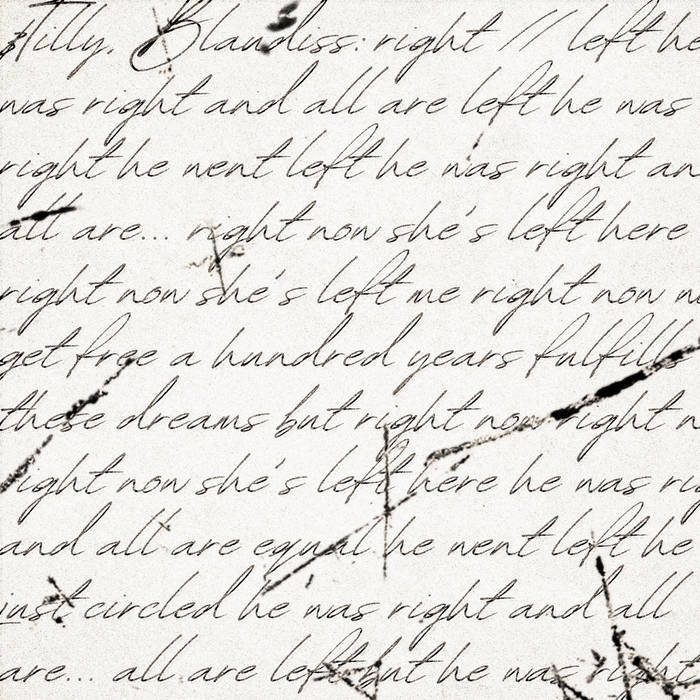 Tilly. Blandiss: right // left he
was right and all are left he was
right he went left he was right an
all are... right now she's left here
right now she's left me right now n
get free a hundred years fulfills
these dreams but right now right n
right now she's left here he was rig
and all are equal he went left he
just circled he was right and all
are... all are left but he was right